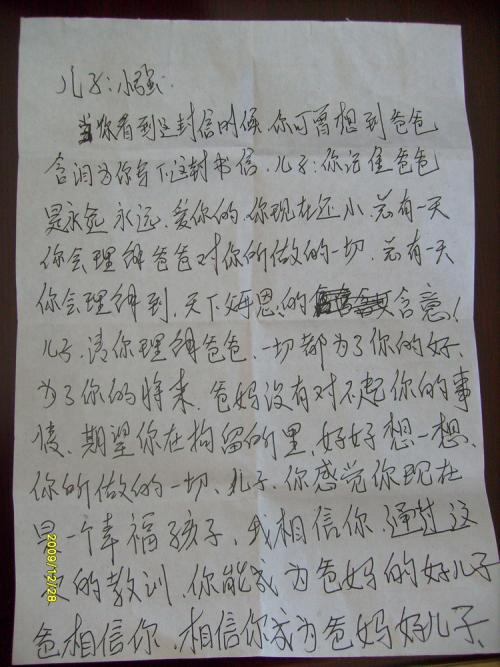 儿子:小强:
当你看到这封信的时候,你可曾想到爸爸
含泪为你写下这封书信,儿子:你记住爸爸
是永远永远,爱你的,你现在还小,总有一天
你会理解爸爸对你的所做的一切,总有一天
你会理解到,天下父母恩的含意!
儿子,请你理解爸爸,一切都为了你的好、
为了你的将来,爸妈没有对不起你的事
情、期望你在拘留所里,好好想一想、
你所做的一切、儿子,你感觉你现在
是一个幸福孩子,我相信你,通过这
次的教训,你能成为爸妈的好儿子
爸相信你,相信你成为爸妈好儿子、
2009/12/28